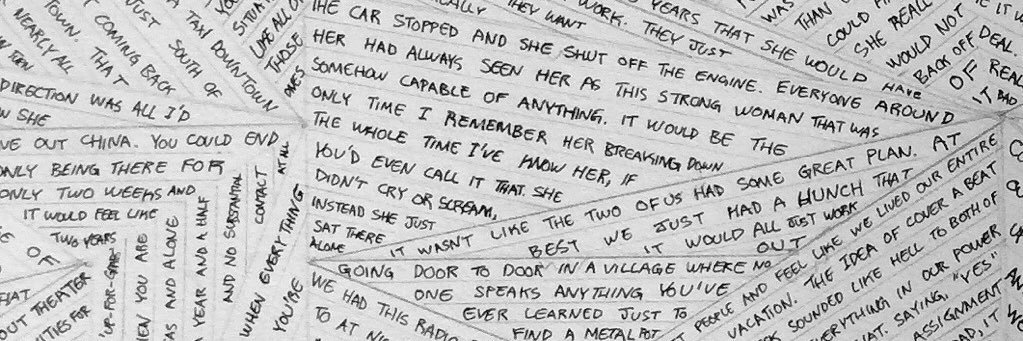 THE CAR STOPPED AND SHE SHUT OFF THE ENGINE. EVERYONE AROUND
HER HAD ALWAYS SEEN HER AS THIS STRONG WOMAN THAT WAS
SOMEHOW CAPABLE OF ANYTHING. IT WOULD BE THE
ONLY TIME I REMEMBER HER BREAKING DOWN
THE WHOLE TIME I'VE KNOW HER, IF
YOU'D EVEN CALL IT THAT. SHE
DIDN'T CRY OR SCREAM,
INSTEAD SHE JUST
SAT THERE
ALONE
IT WASN'T LIKE THE TWO OF US HAD SOME GREAT PLAN. AT
BEST WE JUST HAD A HUNCH THAT
IT WOULD ALL JUST WORK
OUT
GOING DOOR TO DOOR IN A VILLAGE WHERE NO
ONE SPEAKS ANYTHING YOU'VE
EVER LEARNED JUST TO
FIND A METAL POT
WE HAD THIS RADIO
TO AT NIG
PEOPLE AND FEEL LIKE WE LIVED OUR ENTIRE
VACATION. THE IDEA OF COVER A BEAT
SOUNDED LIKE HELL TO BOTH OF
EVERYTHING IN OUR POWER
SAYING, "YES"
ASSIGNMENT
THEY WANT
WORK.
THEY JUST
YEARS THAT SHE WOULD
HAVE
WAS
THAN
COULD
SHE REALL
WOULD NOT
BACK OFF DEAL.
OF REAL
IT BAD
NEARLY ALL
TOWN. THAT
COMING BACK
JUST SOUTH OF
A TAXI DOWNTOWN
SITUAT
LIKE ALL OF
THOSE
ONES
DIRECTION WAS ALL I'D
SHE
VE OUT CHINA. YOU COULD END
ONLY BEING THERE FOR
ONLY TWO WEEKS AND
IT WOULD FEEL LIKE
TWO YEARS
UP-FOR-GRABS
YOU ARE
AND ALONE
YEAR AND A HALF
AND NO SUBSTANTIAL
CONTACT
AT ALL
WHEN EVERYTHING
YOU'RE
OF
THAT
OUT THEATER
TIES FOR